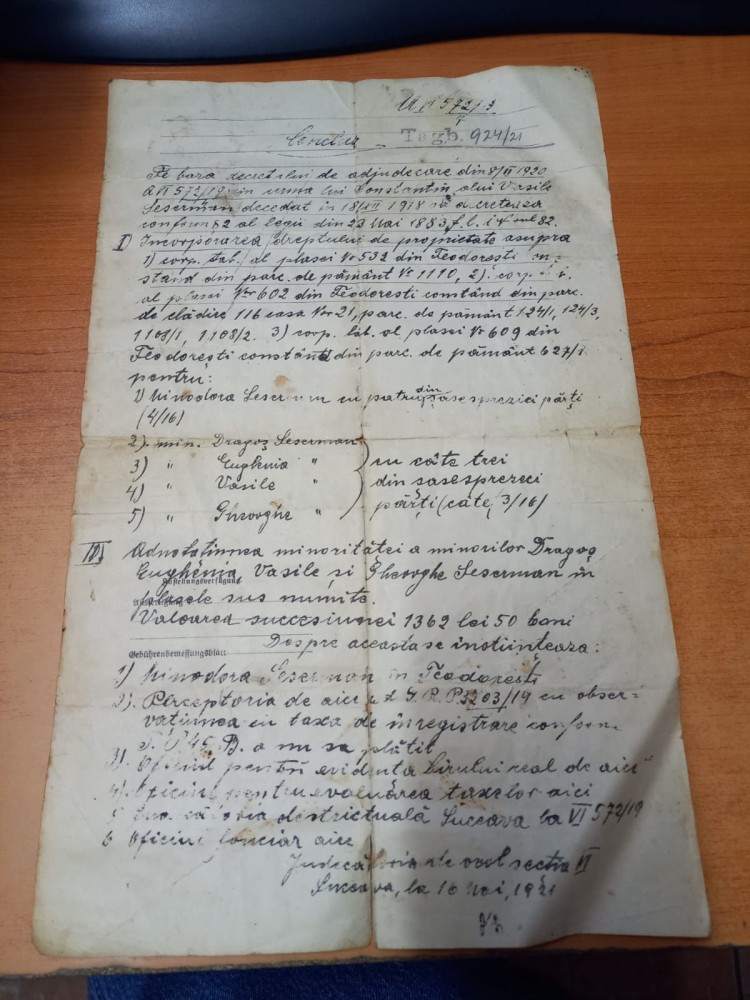 572/3
Tagb. 924/21
Pe baza decretului de adjudecare din 8/II 1920
A VI 572/19 in urma lui Constantin alui Vasile
Seserman decedat in 1918 se decreteaza
conform 82 al legii din 23 Mai 1883 f. l. i. 82.
I) Incorporarea dreptului de proprietate asupra
1) corp. tab. al plasei Nr 532 din Teodoresti con-
stând din parc. de pământ Nr 1110, 2). corp.
al plasei Nro 602 din Teodoresti constând din parc.
de clădire 116 casa Nro 21, parc. de pământ 124/1, 124/3,
1108/1, 1108/2. 3) corp. tab. al plasei Nr 609 din
Teodorești constând din parc. de pământ 627/1
pentru:
1) Minodora Seserman cu patru din sasesprezici părți
(4/16)
2). min. Dragoș Seserman
3) " Eughenia " cu câte trei
4) " Vasile " din sasesprezeci
5) " Gheorghe " părți (câte 3/16)
II) Adnotatiunea minoritătei a minorilor Dragoș
Eughenia, Vasile și Gheorghe Seserman in
Zustellungsverfügung
plasele sus numite.
Valoarea succesiunei 1362 lei 50 bani
Despre aceasta se instiințeaza:
Gebührenbemessungsblatt
1) Minodora Seserman in Teodoresti
2). Perceptoria de aici 3203/19 cu obser-
vatiunea cu taxa de înregistrare conform
T. P. 45 B. a nu sa plătit
3). Oficiul pentru evidenta birului real de aici
4). Oficiul pentru evaluărea taxelor aici
5 districtuală Suceava la VI 572/19
6 Oficiul fonciar aici
Judecătoria de ocol sectia VI
Suceava, la 10 Mai, 1921